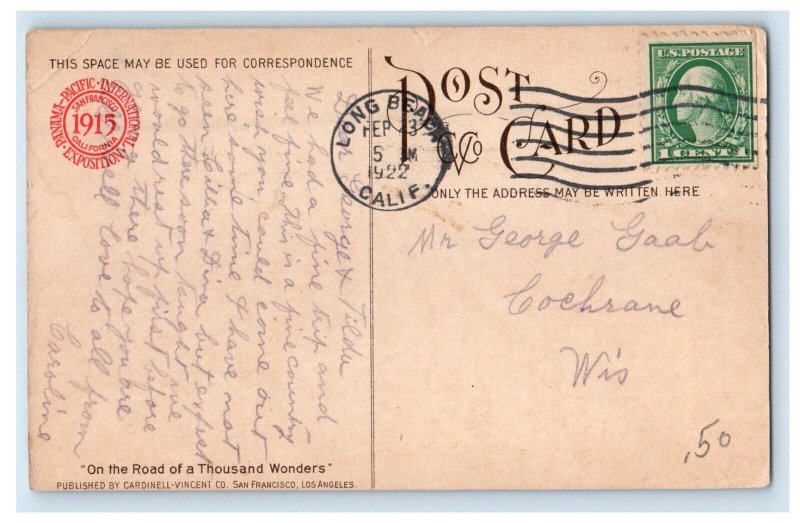 THIS SPACE MAY BE USED FOR CORRESPONDENCE
PANAMA-PACIFIC-INTERNATIONAL
SAN FRANCISCO
1915
CALIFORNIA
EXPOSITION
POST CARD
CVCo
ONLY THE ADDRESS MAY BE WRITTEN HERE
U.S. POSTAGE
1 CENT 1
LONG BEACH
FEB 3
5 M
1922
CALIF.
Dear George & Tildu
We had a fine trip and
feel fine this is a fine country
wish you could come out
here some time I have not
seen & Dina but expect
to go there soon tought me
would rest up first before
there hope you are
all love to all from
Caroline
Mr George Gaab
Cochrane
Wis
,50
"On the Road of a Thousand Wonders"
PUBLISHED BY CARDINELL-VINCENT CO. SAN FRANCISCO, LOS ANGELES.